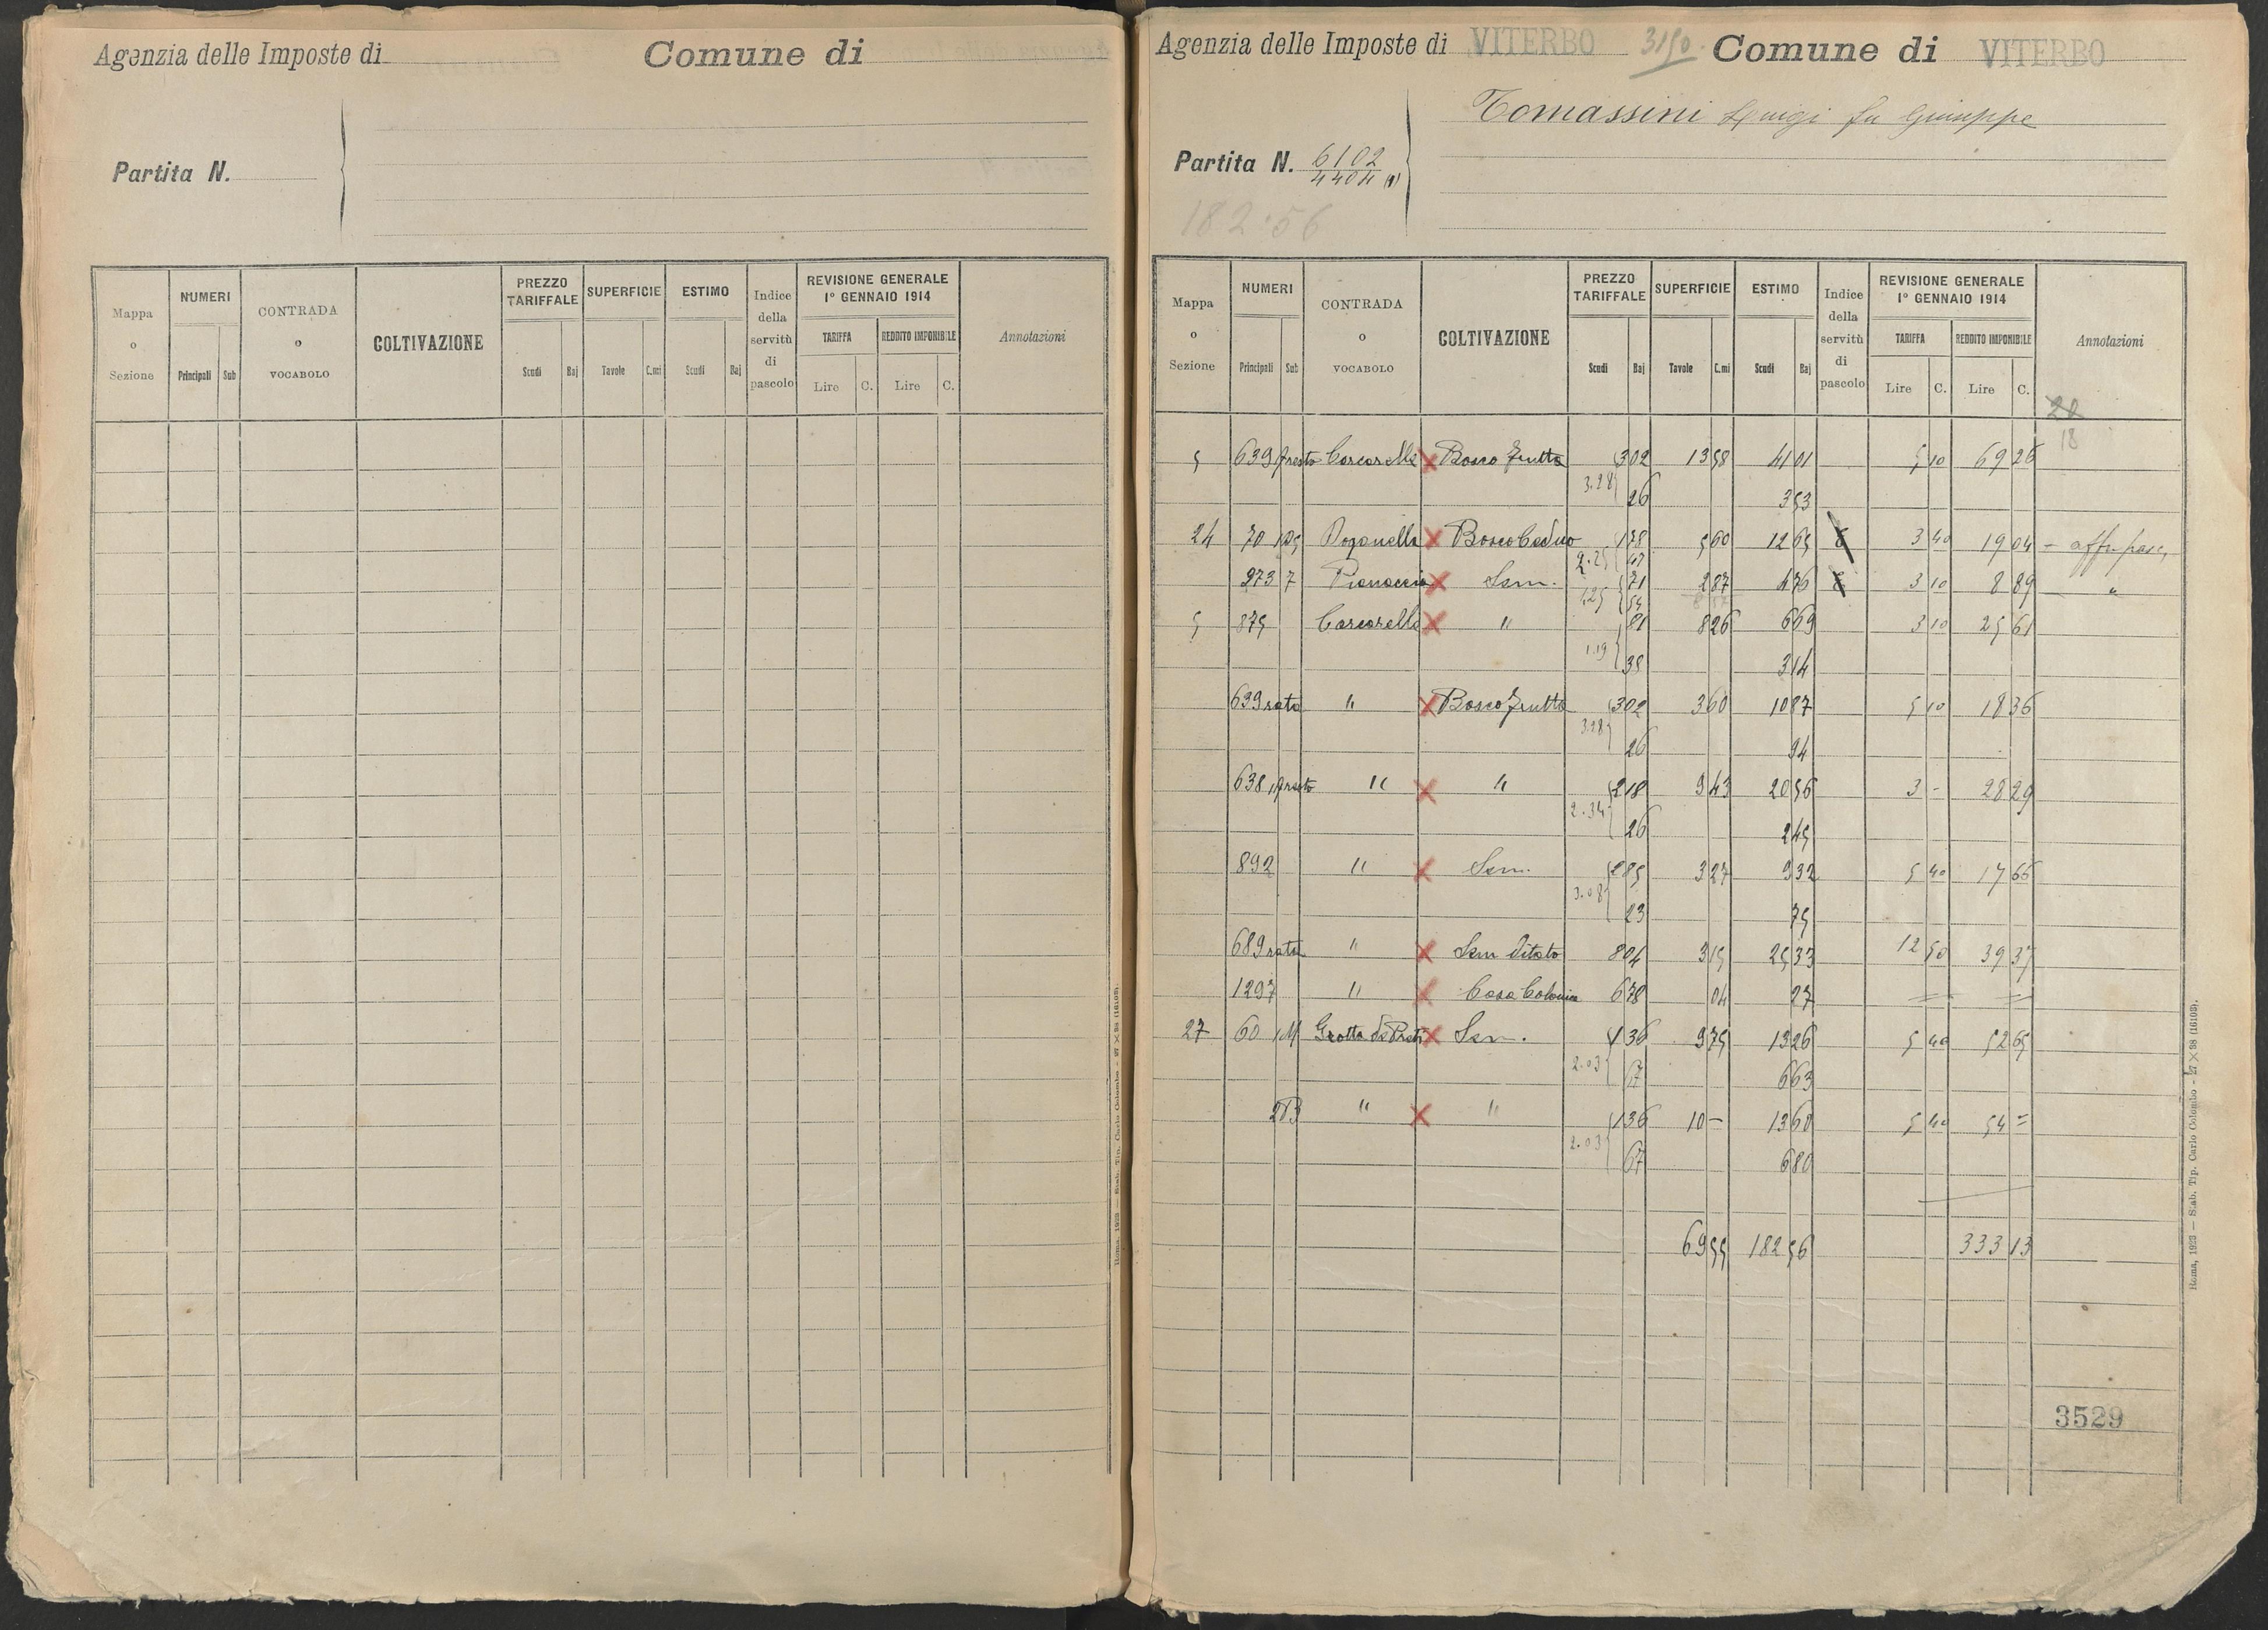 Agenzia delle Imposte di
Comune di
Partita N.
Mappa o Sezione
NUMERI
Principali Sub
CONTRADA o VOCABOLO
COLTIVAZIONE
PREZZO TARIFFALE
Scudi Baj
SUPERFICIE
Tavole C.mi
ESTIMO
Scudi Baj
Indice della servitù di pascolo
REVISIONE GENERALE
1° GENNAIO 1914
TARIFFA REDDITO IMPONIBILE
Lire C. Lire C.
Annotazioni
Roma, 1923 — Stab. Tip. Carlo Colombo - 27 × 38 (16108).
Agenzia delle Imposte di VITERBO 3150. Comune di VITERBO
Tomassini Luigi fu Giuseppe
Partita N. 6102
4404 (1)
182.56
Mappa o Sezione
NUMERI
Principali Sub
CONTRADA o VOCABOLO
COLTIVAZIONE
PREZZO TARIFFALE
Scudi Baj
SUPERFICIE
Tavole C.mi
ESTIMO
Scudi Baj
Indice della servitù di pascolo
REVISIONE GENERALE
1° GENNAIO 1914
TARIFFA REDDITO IMPONIBILE
Lire C. Lire C.
Annotazioni
20
18
5 639 resto Carcarelle X Bosco frutto 3 02 13 58 41 01 5 10 69 26
3.28 26 3 53
24 70 Poganella X Bosco Ceduo 1 78 5 60 12 65 3 40 19 04
2.25 47
973 7 Pianaccia X Sem. 71 2 87 4 76 3 10 8 89 "
1.25 54
5 875 Carcarelle X " 81 8 26 6 69 3 10 25 61
1.19 38 3 14
639 rata " X Bosco frutto 3 02 3 60 10 87 5 10 18 36
3.28 26 94
638 resto " X " 2 18 9 43 20 56 3 - 28 29
2.34 26 2 45
892 " X Sem. 2 85 3 27 9 32 5 40 17 66
3.08 23 75
689 rata " X Sem Vitato 8 04 3 15 25 33 12 50 39 37
1297 " X Casa Colonica 6 78 04 27 = =
27 60 1M Grotta de Preti X Sem. 1 36 9 75 13 26 5 40 52 65
2.03 67 6 63
2B " X " 1 36 10 - 13 60 5 40 54 =
2.03 67 6 80
69 55 182 56 333 13
3529
Roma, 1923 — Stab. Tip. Carlo Colombo - 27 × 38 (16108).